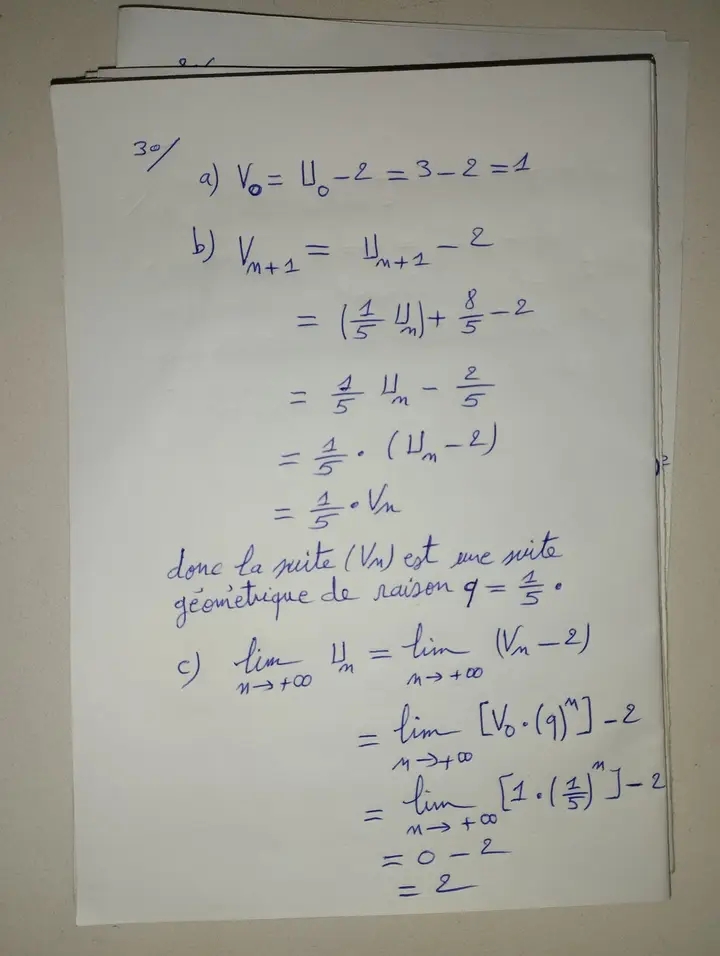 30/
a) V₀ = U₀ - 2 = 3 - 2 = 1
b) Vₙ₊₁ = Uₙ₊₁ - 2
= (1/5 Uₙ) + 8/5 - 2
= 1/5 Uₙ - 2/5
= 1/5 . (Uₙ - 2)
= 1/5 . Vₙ
donc la suite (Vn) est une suite
géométrique de raison q = 1/5 .
c) lim n→+∞ Uₙ = lim n→+∞ (Vₙ - 2)
= lim n→+∞ [V₀ . (q)ⁿ] - 2
= lim n→+∞ [1 . (1/5)ⁿ] - 2
= 0 - 2
= 2